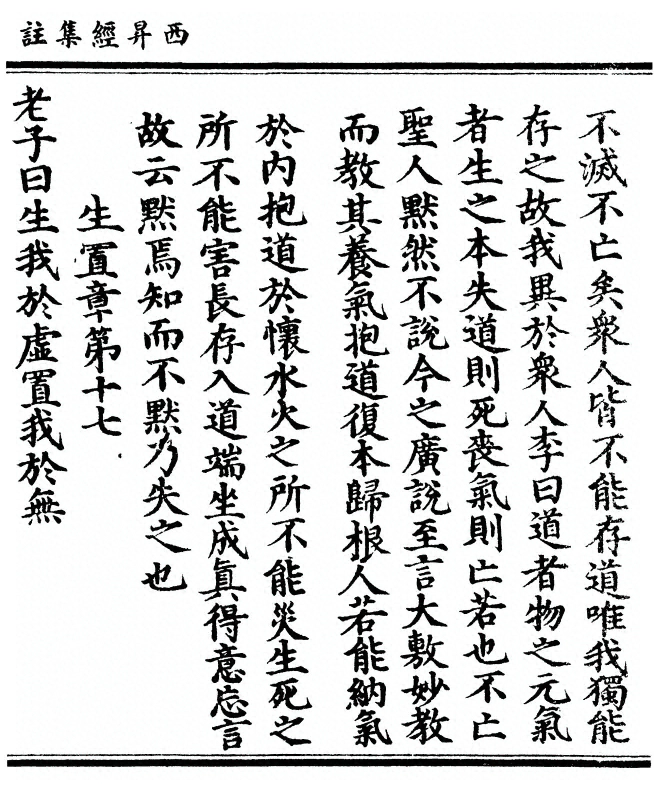 西昇經集註
不滅不亡矣衆人皆不能存道唯我獨能
存之故我異於衆人李曰道者物之元氣
者生之本失道則死喪氣則亡若也不亡
聖人默然不說今之廣說至言大敷妙教
而教其養氣抱道復本歸根人若能納氣
於内抱道於懷水火之所不能災生死之
所不能害長存入道端坐成真得意忘言
故云默焉知而不默乃失之也
生置章第十七
老子曰生我於虛置我於無